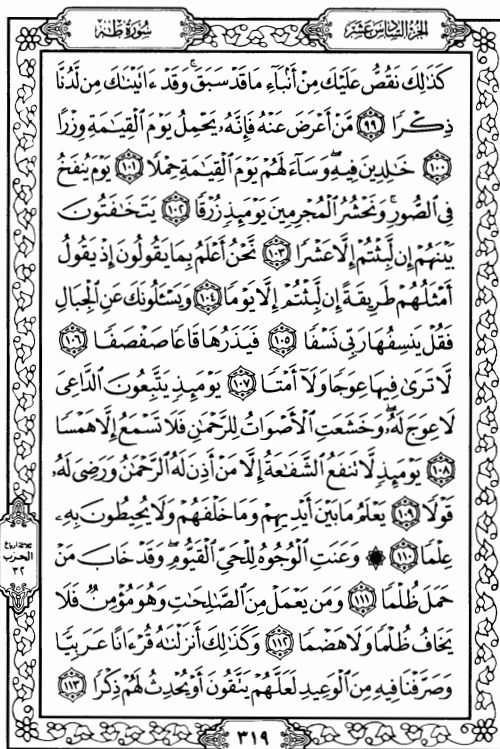 الجزء السادس عشر
سورة طه
كَذَٰلِكَ نَقُصُّ عَلَيْكَ مِنْ أَنۢبَآءِ مَا قَدْ سَبَقَ ۚ وَقَدْ ءَاتَيْنَٰكَ مِن لَّدُنَّا
ذِكْرًا ٩٩ مَّنْ أَعْرَضَ عَنْهُ فَإِنَّهُۥ يَحْمِلُ يَوْمَ ٱلْقِيَٰمَةِ وِزْرًا
١٠٠ خَٰلِدِينَ فِيهِ ۖ وَسَآءَ لَهُمْ يَوْمَ ٱلْقِيَٰمَةِ حِمْلًا ١٠١ يَوْمَ يُنفَخُ
فِى ٱلصُّورِ ۚ وَنَحْشُرُ ٱلْمُجْرِمِينَ يَوْمَئِذٍ زُرْقًا ١٠٢ يَتَخَٰفَتُونَ
بَيْنَهُمْ إِن لَّبِثْتُمْ إِلَّا عَشْرًا ١٠٣ نَّحْنُ أَعْلَمُ بِمَا يَقُولُونَ إِذْ يَقُولُ
أَمْثَلُهُمْ طَرِيقَةً إِن لَّبِثْتُمْ إِلَّا يَوْمًا ١٠٤ وَيَسْـَٔلُونَكَ عَنِ ٱلْجِبَالِ
فَقُلْ يَنسِفُهَا رَبِّى نَسْفًا ١٠٥ فَيَذَرُهَا قَاعًا صَفْصَفًا ١٠٦
لَّا تَرَىٰ فِيهَا عِوَجًا وَلَآ أَمْتًا ١٠٧ يَوْمَئِذٍ يَتَّبِعُونَ ٱلدَّاعِىَ
لَا عِوَجَ لَهُۥ ۖ وَخَشَعَتِ ٱلْأَصْوَاتُ لِلرَّحْمَٰنِ فَلَا تَسْمَعُ إِلَّا هَمْسًا
١٠٨ يَوْمَئِذٍ لَّا تَنفَعُ ٱلشَّفَٰعَةُ إِلَّا مَنْ أَذِنَ لَهُ ٱلرَّحْمَٰنُ وَرَضِىَ لَهُۥ
قَوْلًا ١٠٩ يَعْلَمُ مَا بَيْنَ أَيْدِيهِمْ وَمَا خَلْفَهُمْ وَلَا يُحِيطُونَ بِهِۦ
عِلْمًا ١١٠ ۞ وَعَنَتِ ٱلْوُجُوهُ لِلْحَىِّ ٱلْقَيُّومِ ۖ وَقَدْ خَابَ مَنْ
حَمَلَ ظُلْمًا ١١١ وَمَن يَعْمَلْ مِنَ ٱلصَّٰلِحَٰتِ وَهُوَ مُؤْمِنٌ فَلَا
يَخَافُ ظُلْمًا وَلَا هَضْمًا ١١٢ وَكَذَٰلِكَ أَنزَلْنَٰهُ قُرْءَانًا عَرَبِيًّا
وَصَرَّفْنَا فِيهِ مِنَ ٱلْوَعِيدِ لَعَلَّهُمْ يَتَّقُونَ أَوْ يُحْدِثُ لَهُمْ ذِكْرًا ١١٣
الحزب
٣٢
٣١٩